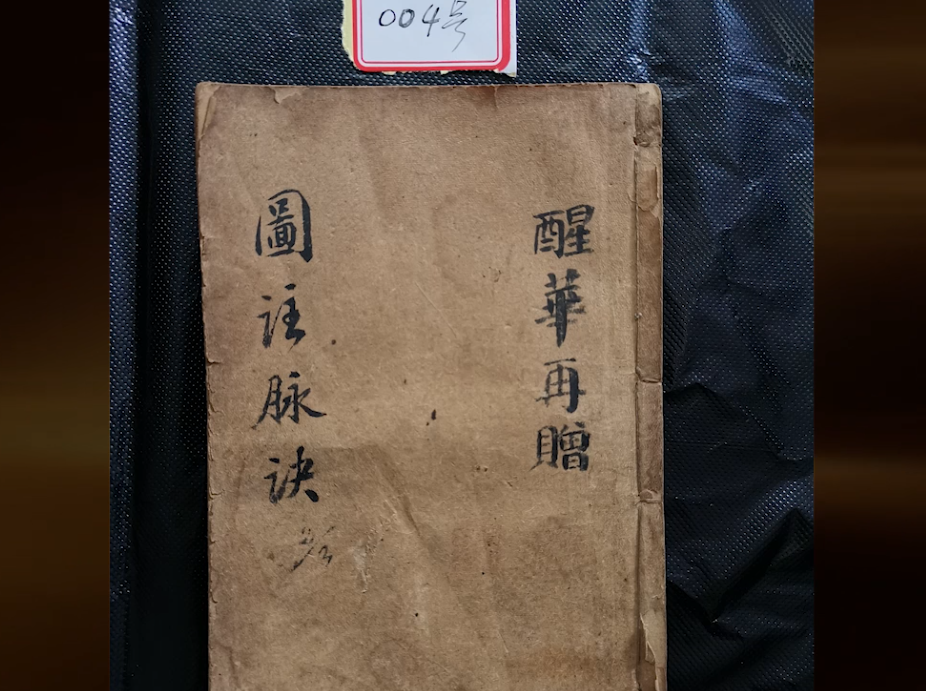 004号
醒華再贈
圖註脉訣